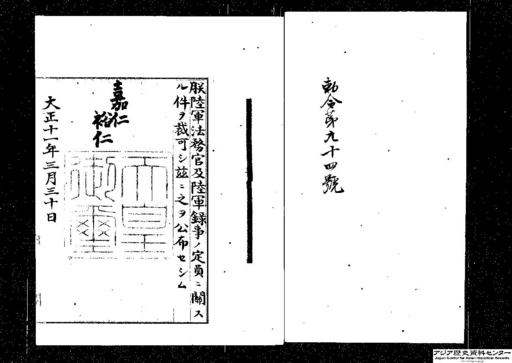 勅令第九十四號
朕陸軍法務官及陸軍録事ノ定員ニ關ス
ル件ヲ裁可シ茲ニ之ヲ公布セシム
嘉仁
裕仁
天皇御璽
大正十一年三月三十日
アジア歴史資料センター
Japan Center for Asian Historical Records